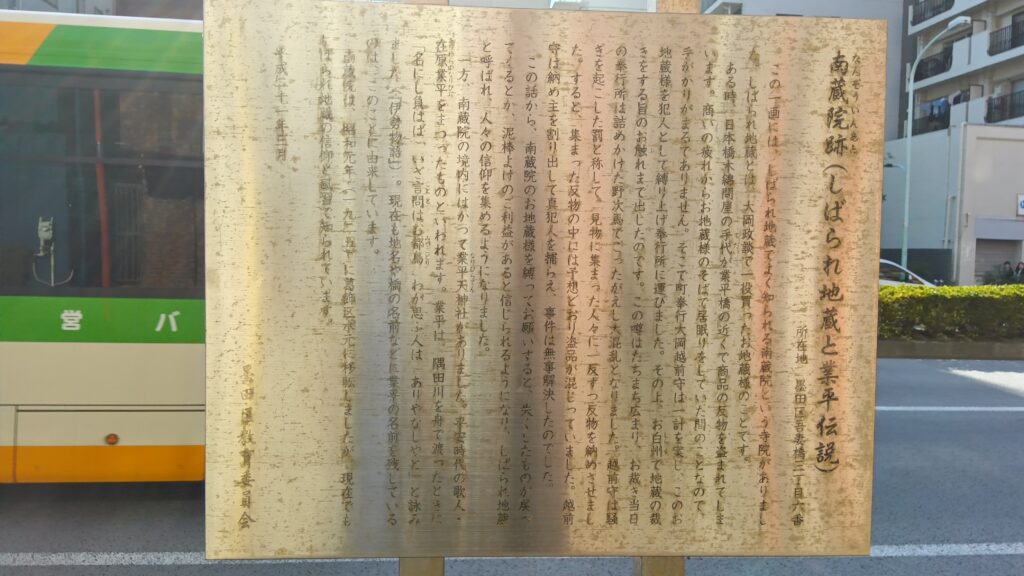 南蔵院跡（しばられ地蔵と業平伝説）
なんぞういんあと
所在地 墨田区吾妻橋三丁目六番
この一画には、しばられ地蔵でよく知られる南蔵院という寺院がありまし
た。しばられ地蔵とは、大岡政談で一役買ったお地蔵様のことです。
ある時、日本橋木綿問屋の手代が業平橋の近くで商品の反物を盗まれてしま
います。商いの疲れからお地蔵様のそばで居眠りをしていた間のことなので、
手がかりがまるでありません。そこで町奉行大岡越前守は一計を案じ、このお
地蔵様を犯人として縛り上げ奉行所に運びました。その上、お白州で地蔵の裁
きをする旨のお触れまで出したのです。この噂はたちまち広まり、お裁き当日
の奉行所は詰めかけた野次馬でごったがえし大混乱となりました。越前守は騒
ぎを起こした罰と称して、見物に集まった人々に一反ずつ反物を納めさせまし
た。すると、集まった反物の中には予想どおり盗品が混じっていました。越前
守は納め主を割り出して真犯人を捕らえ、事件は無事解決したのでした。
この話から、南蔵院のお地蔵様を縛ってお願いすると、失くしたものが戻っ
てくるとか、泥棒よけのご利益があると信じられるようになり、しばられ地蔵
と呼ばれ、人々の信仰を集めるようになりました。
一方、南蔵院の境内にはかつて業平天神社がありました。平安時代の歌人・
在原業平をまつったものといわれます。業平は、隅田川を舟で渡ったときに
「名にし負はば いざ言問はむ都鳥 わが思ふ人は ありやなしやと」と詠み
ました（『伊勢物語』）。現在も地名や橋の名前などに業平の名前を残している
のは、このことに由来しています。
南蔵院は、昭和元年（一九二 ）に葛飾区水元に移転しましたが、現在でも
しばられ地蔵の信仰と 知られています。
平成二十一年三月
墨田区教育委員会
営 バ